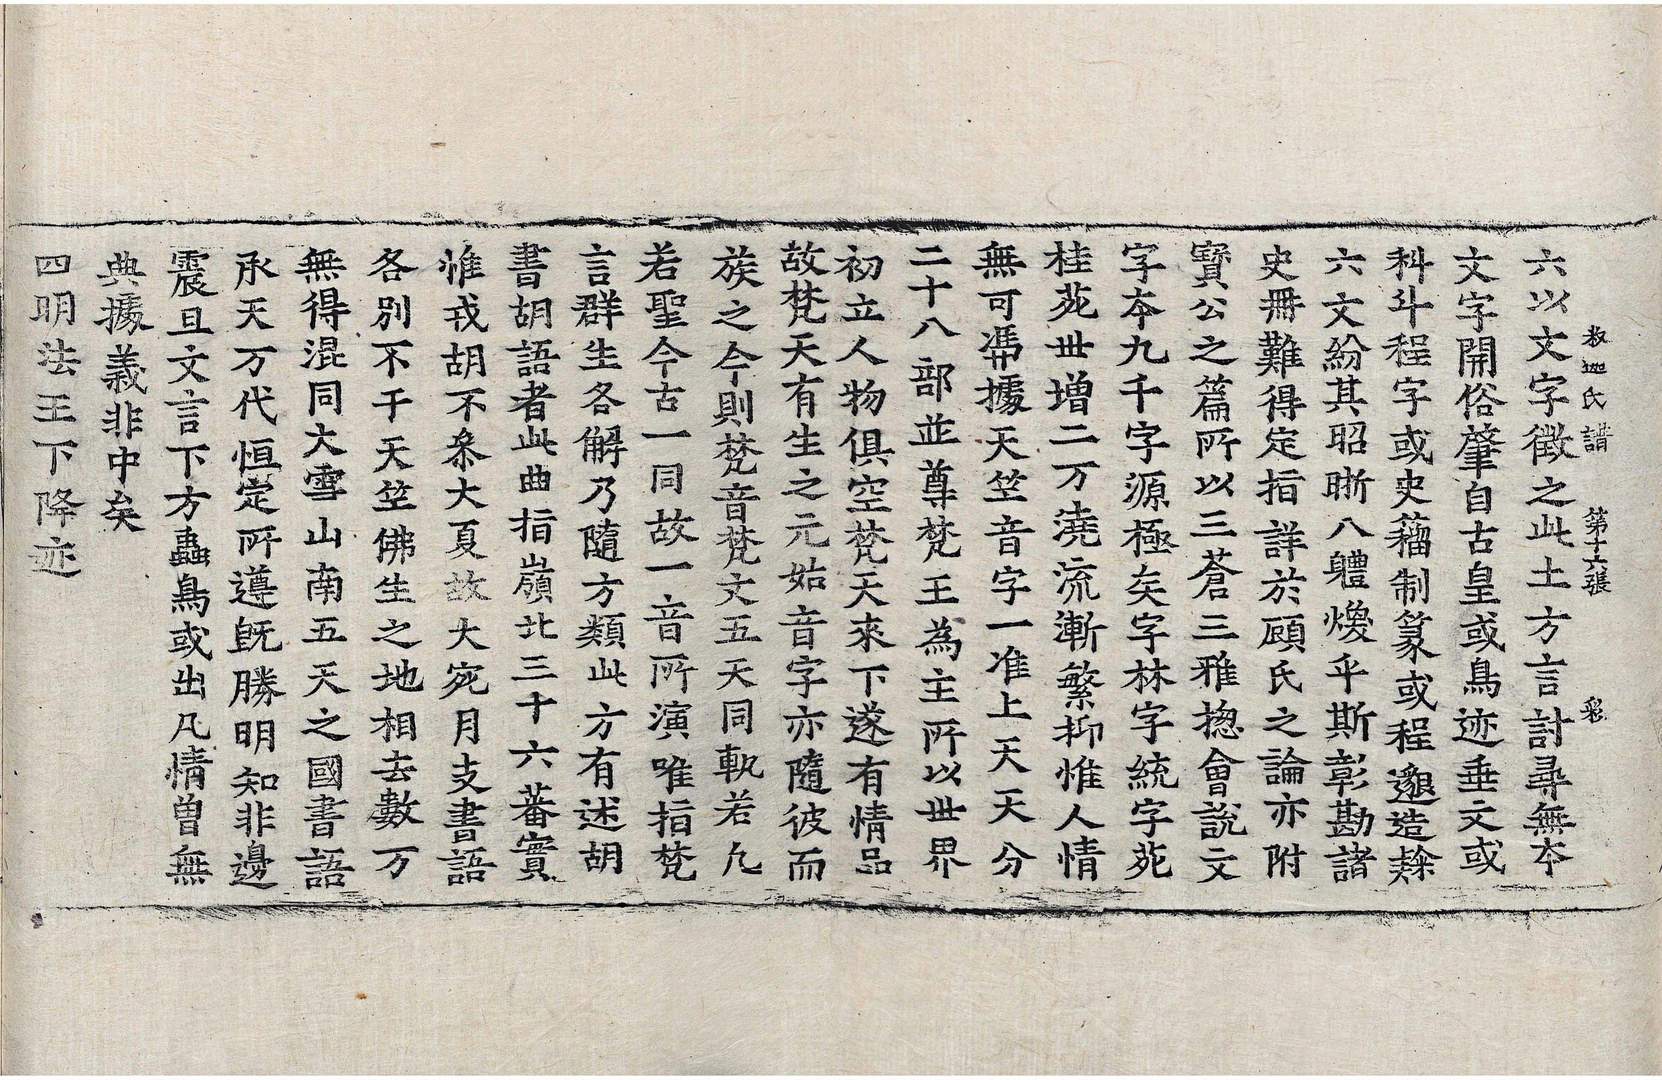 釋迦氏譜 第十六張 彩
六以文字徵之此土方言討尋無本
文字開俗肇自古皇或鳥迹垂文或
科斗程字或史籀制篆或程邈造隸
六文紛其昭晰八軆煥乎斯彰勘諸
史冊難得定指詳於顧氏之論亦附
寶公之篇所以三蒼三雅揔會說文
字本九千字源極矣字林字統字苑
桂苑世增二万澆流漸繁抑惟人情
無可馮據天竺音字一准上天天分
二十八部並尊梵王為主所以世界
初立人物俱空梵天來下遂有情品
故梵天有生之元始音字亦隨彼而
族之今則梵音梵文五天同軌若凡
若聖今古一同故一音所演唯指梵
言群生各解乃隨方類此方有述胡
書胡語者此曲指嶺北三十六蕃實
惟戎胡不叅大夏故大宛月支書語
各別不干天竺佛生之地相去數万
無得混同大雪山南五天之國書語
承天万代恒定所遵旣勝明知非邊
震旦文言下方蟲鳥或出凡情曽無
典據義非中矣
四明法王下降迹